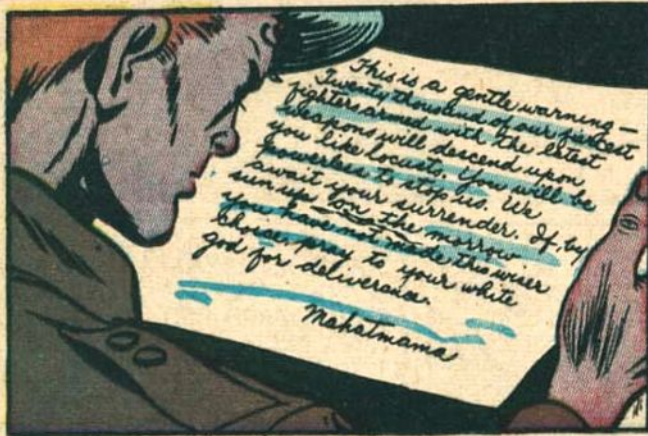 This is a gentle warning —
Twenty thousand of our fiercest
fighters armed with the latest
weapons will descend upon
you like locusts. You will be
powerless to stop us. We
await your surrender. If, by
sun up on the morrow
you have not made this wiser
choice, pray to your white
god for deliverance.
Mahatmama